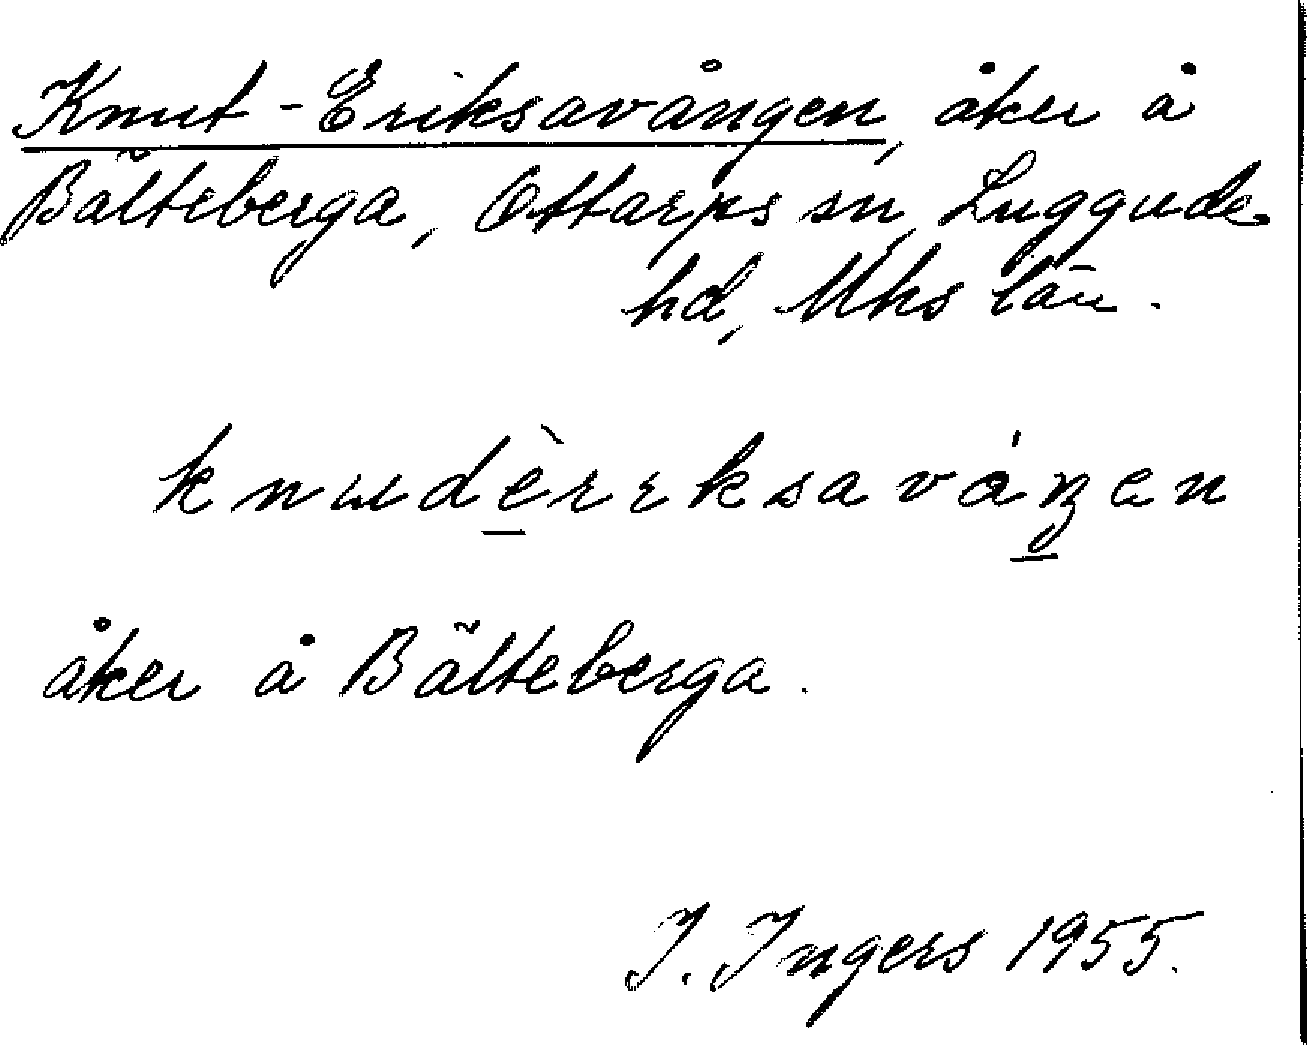 Knut-Eriksavången, åker å
Bälteberga, Ottarps sn, Luggude
hd, Mhs län.
knudèreksaváŋen
åker å Bälteberga.
I. Ingers 1955.